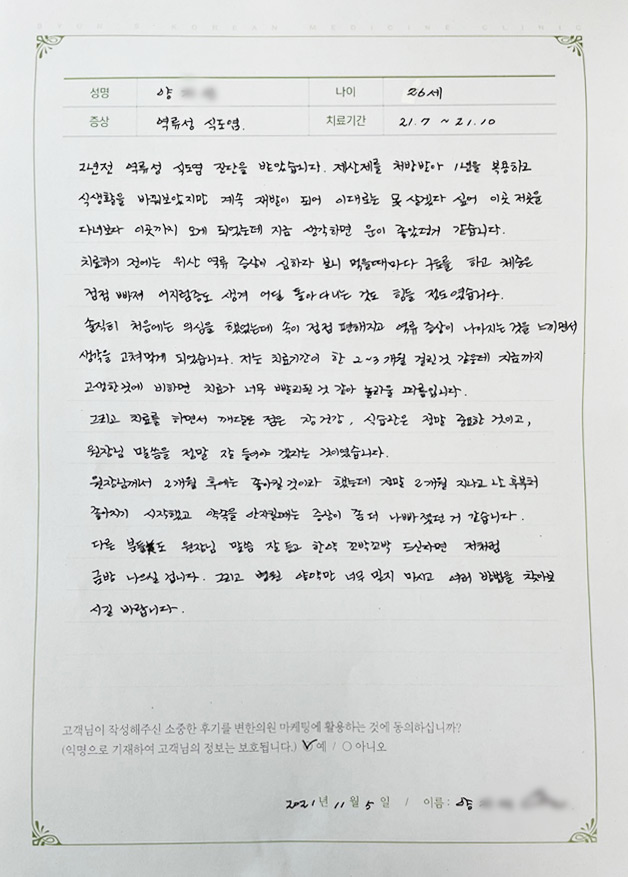 BYUN'S KOREAN MEDICINE CLINIC
성명 양 나이 26세
증상 역류성 식도염. 치료기간 21.7 ~ 21.10
2년전 역류성 식도염 진단을 받았습니다. 제산제를 처방받아 1년을 복용하고
식생활을 바꿔보았지만 계속 재발이 되어 이대로는 못 살겠다 싶어 이곳 저곳을
다녀보다 이곳까지 오게 되었는데 지금 생각하면 운이 좋았던거 같습니다.
치료하기 전에는 위산 역류 증상이 심하다 보니 먹을때마다 구토를 하고 체중은
점점 빠져 어지럼증도 생겨 어딜 돌아다니는 것도 힘들 정도였습니다.
솔직히 처음에는 의심을 했었는데 속이 점점 편해지고 역류 증상이 나아지는 것을 느끼면서
생각을 고쳐먹게 되었습니다. 저는 치료기간이 한 2~3개월 걸린것 같은데 지금까지
고생한것에 비하면 치료가 너무 빨리된 것 같아 놀라울 따름입니다.
그리고 치료를 하면서 깨달은 점은 장건강, 식습관은 정말 중요한 것이고,
원장님 말씀을 정말 잘 들어야 겠다는 것이였습니다.
원장님께서 2개월 후에는 좋아질것이라 했는데 정말 2개월 지나고 난 후부터
좋아지기 시작했고 약국을 안지킬때는 증상이 좀 더 나빠졌던 거 같습니다.
다른 분들도 원장님 말씀 잘 듣고 한약 꼬박꼬박 드신다면 저처럼
금방 나으실 겁니다. 그리고 병원 양약만 너무 믿지 마시고 여러 방법을 찾아보
시길 바랍니다.
고객님이 작성해주신 소중한 후기를 변한의원 마케팅에 활용하는 것에 동의하십니까?
(익명으로 기재하여 고객님의 정보는 보호됩니다.) ✓예 / ○아니오
2021년 11월 5일 / 이름: 양